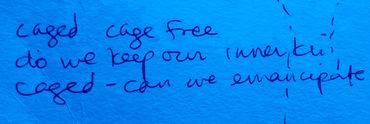 caged cage free
do we keep our inner
caged - can we emancipate